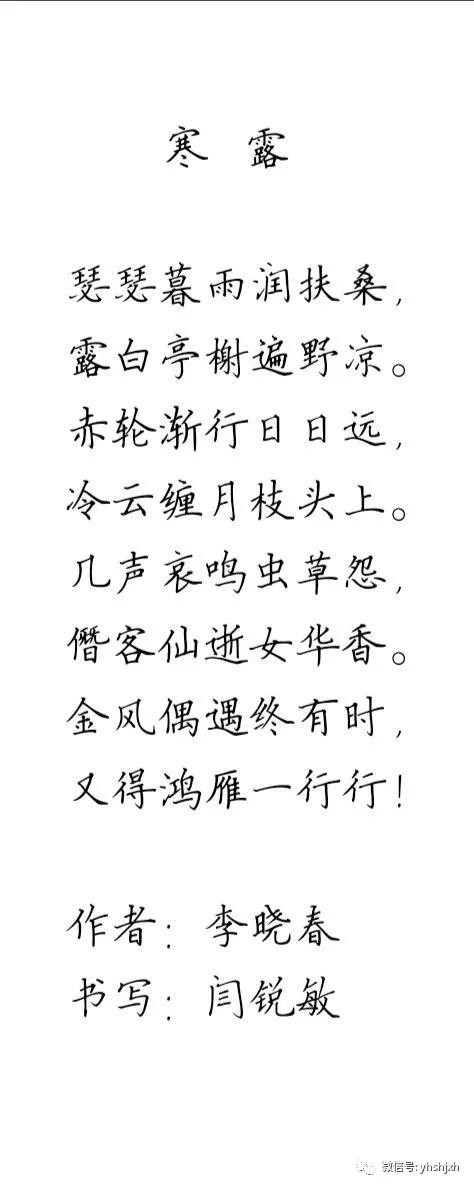 寒 露
瑟瑟暮雨润扶桑，
露白亭榭遍野凉。
赤轮渐行日日远，
冷云缠月枝头上。
几声哀鸣虫草怨，
僭客仙逝女华香。
金风偶遇终有时，
又得鸿雁一行行！
作者：李晓春
书写：闫锐敏
微信号: yhshjxh